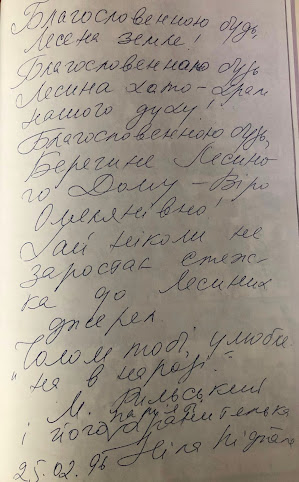 Благословенною будь,
Лесена земле!
Благословенною будь
Лесина хато - Храм
нашого духу!
Благословенною будь,
Берегине Лесино-
го Дому - Віро
Омелянівно!
Хай ніколи не
заростає стеж-
ка до Лесиних
джерел.
"Чолом тобі, улюбле-
на в народі."
М. Рильський
і його
25.02.96 Ніла